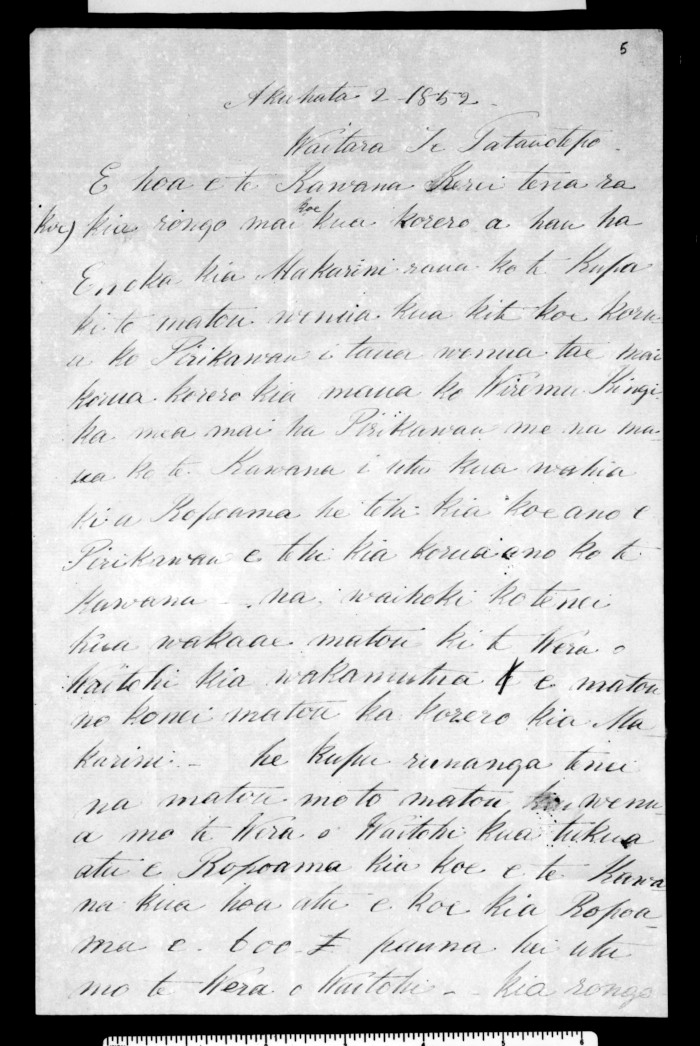 5
Akuhata 2 - 1852 -
Waitara Te Tatauotepo -
E hoa e te Kawana Kerei tena ra
koe) kia rongo mai koe kua korero a hau ha
Enoka kia Makarini raua ko te Kupa
ki to matou wenua kua kite koe koru
a ko Pirikawau i taua wenua tae mai
korua korero kia maua ko Wiremu Kingi
ka mea mai ha Pirikawau me na ma-
ua ko te Kawana i utu kua wahia
ki a Ropoama he tehi kia koe ano e
Pirikawau e tehi kia korua ano ko te
Kawana - na, waihoki ko tenei
kua wakaae matou ki te Wera o
Waitohi kia wakamutua e matou
no konei matou ka korero kia Ma
karini - he kupu runanga tenei
na matou mo to matou wenu-
a mo te Wera o Waitohi kua tukua
atu e Ropoama kia koe e te Kawa-
na kua hoa atu e koe kia Ropoa-
ma e. 600 £ pauna hei utu
mo te Wera o Waitohi - - kia rongo